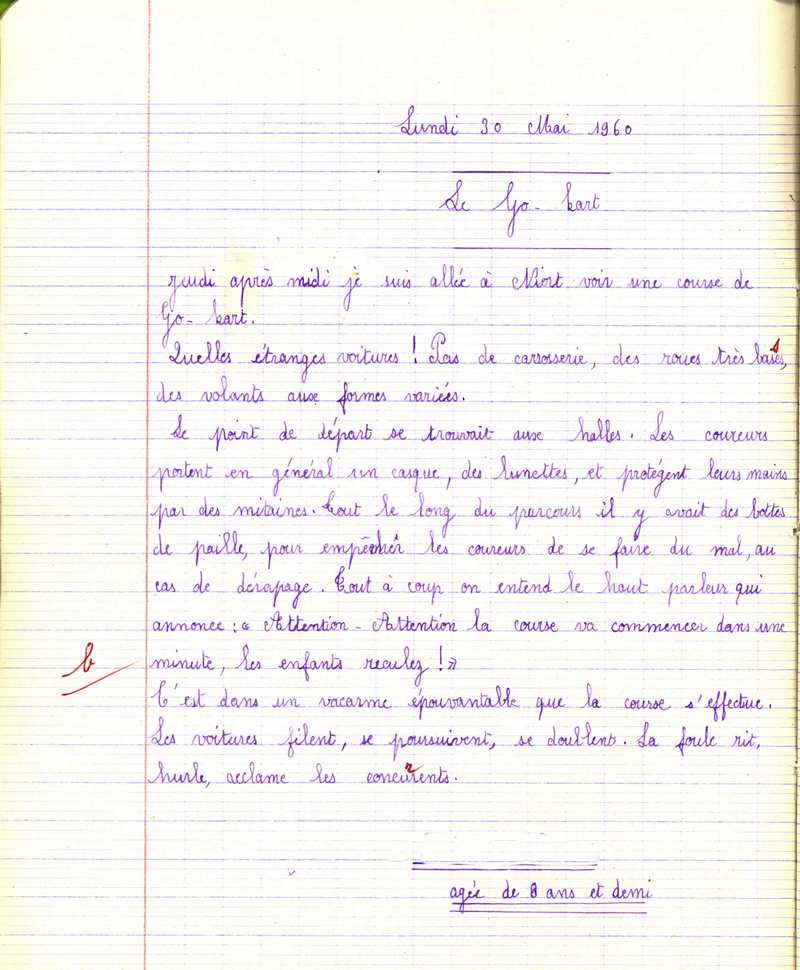 Lundi 30 Mai 1960
Le Go-kart
Jeudi après midi je suis allée à Niort voir une course de
Go-kart.
Quelles étranges voitures ! Pas de carrosserie, des roues très basses,
des volants aux formes variées.
Le point de départ se trouvait aux halles. Les coureurs
portent en général un casque, des lunettes, et protégent leurs mains
par des mitaines. Tout le long du parcours il y avait des bottes
de paille, pour empêcher les coureurs de se faire du mal, au
cas de dérapage. Tout à coup on entend le haut parleur qui
annonce : « Attention - Attention la course va commencer dans une
b
minute, les enfants reculez ! »
C'est dans un vacarme épouvantable que la course s'effectue.
Les voitures filent, se poursuivent, se doublent. La foule rit,
hurle, acclame les concurrents.
agée de 8 ans et demi